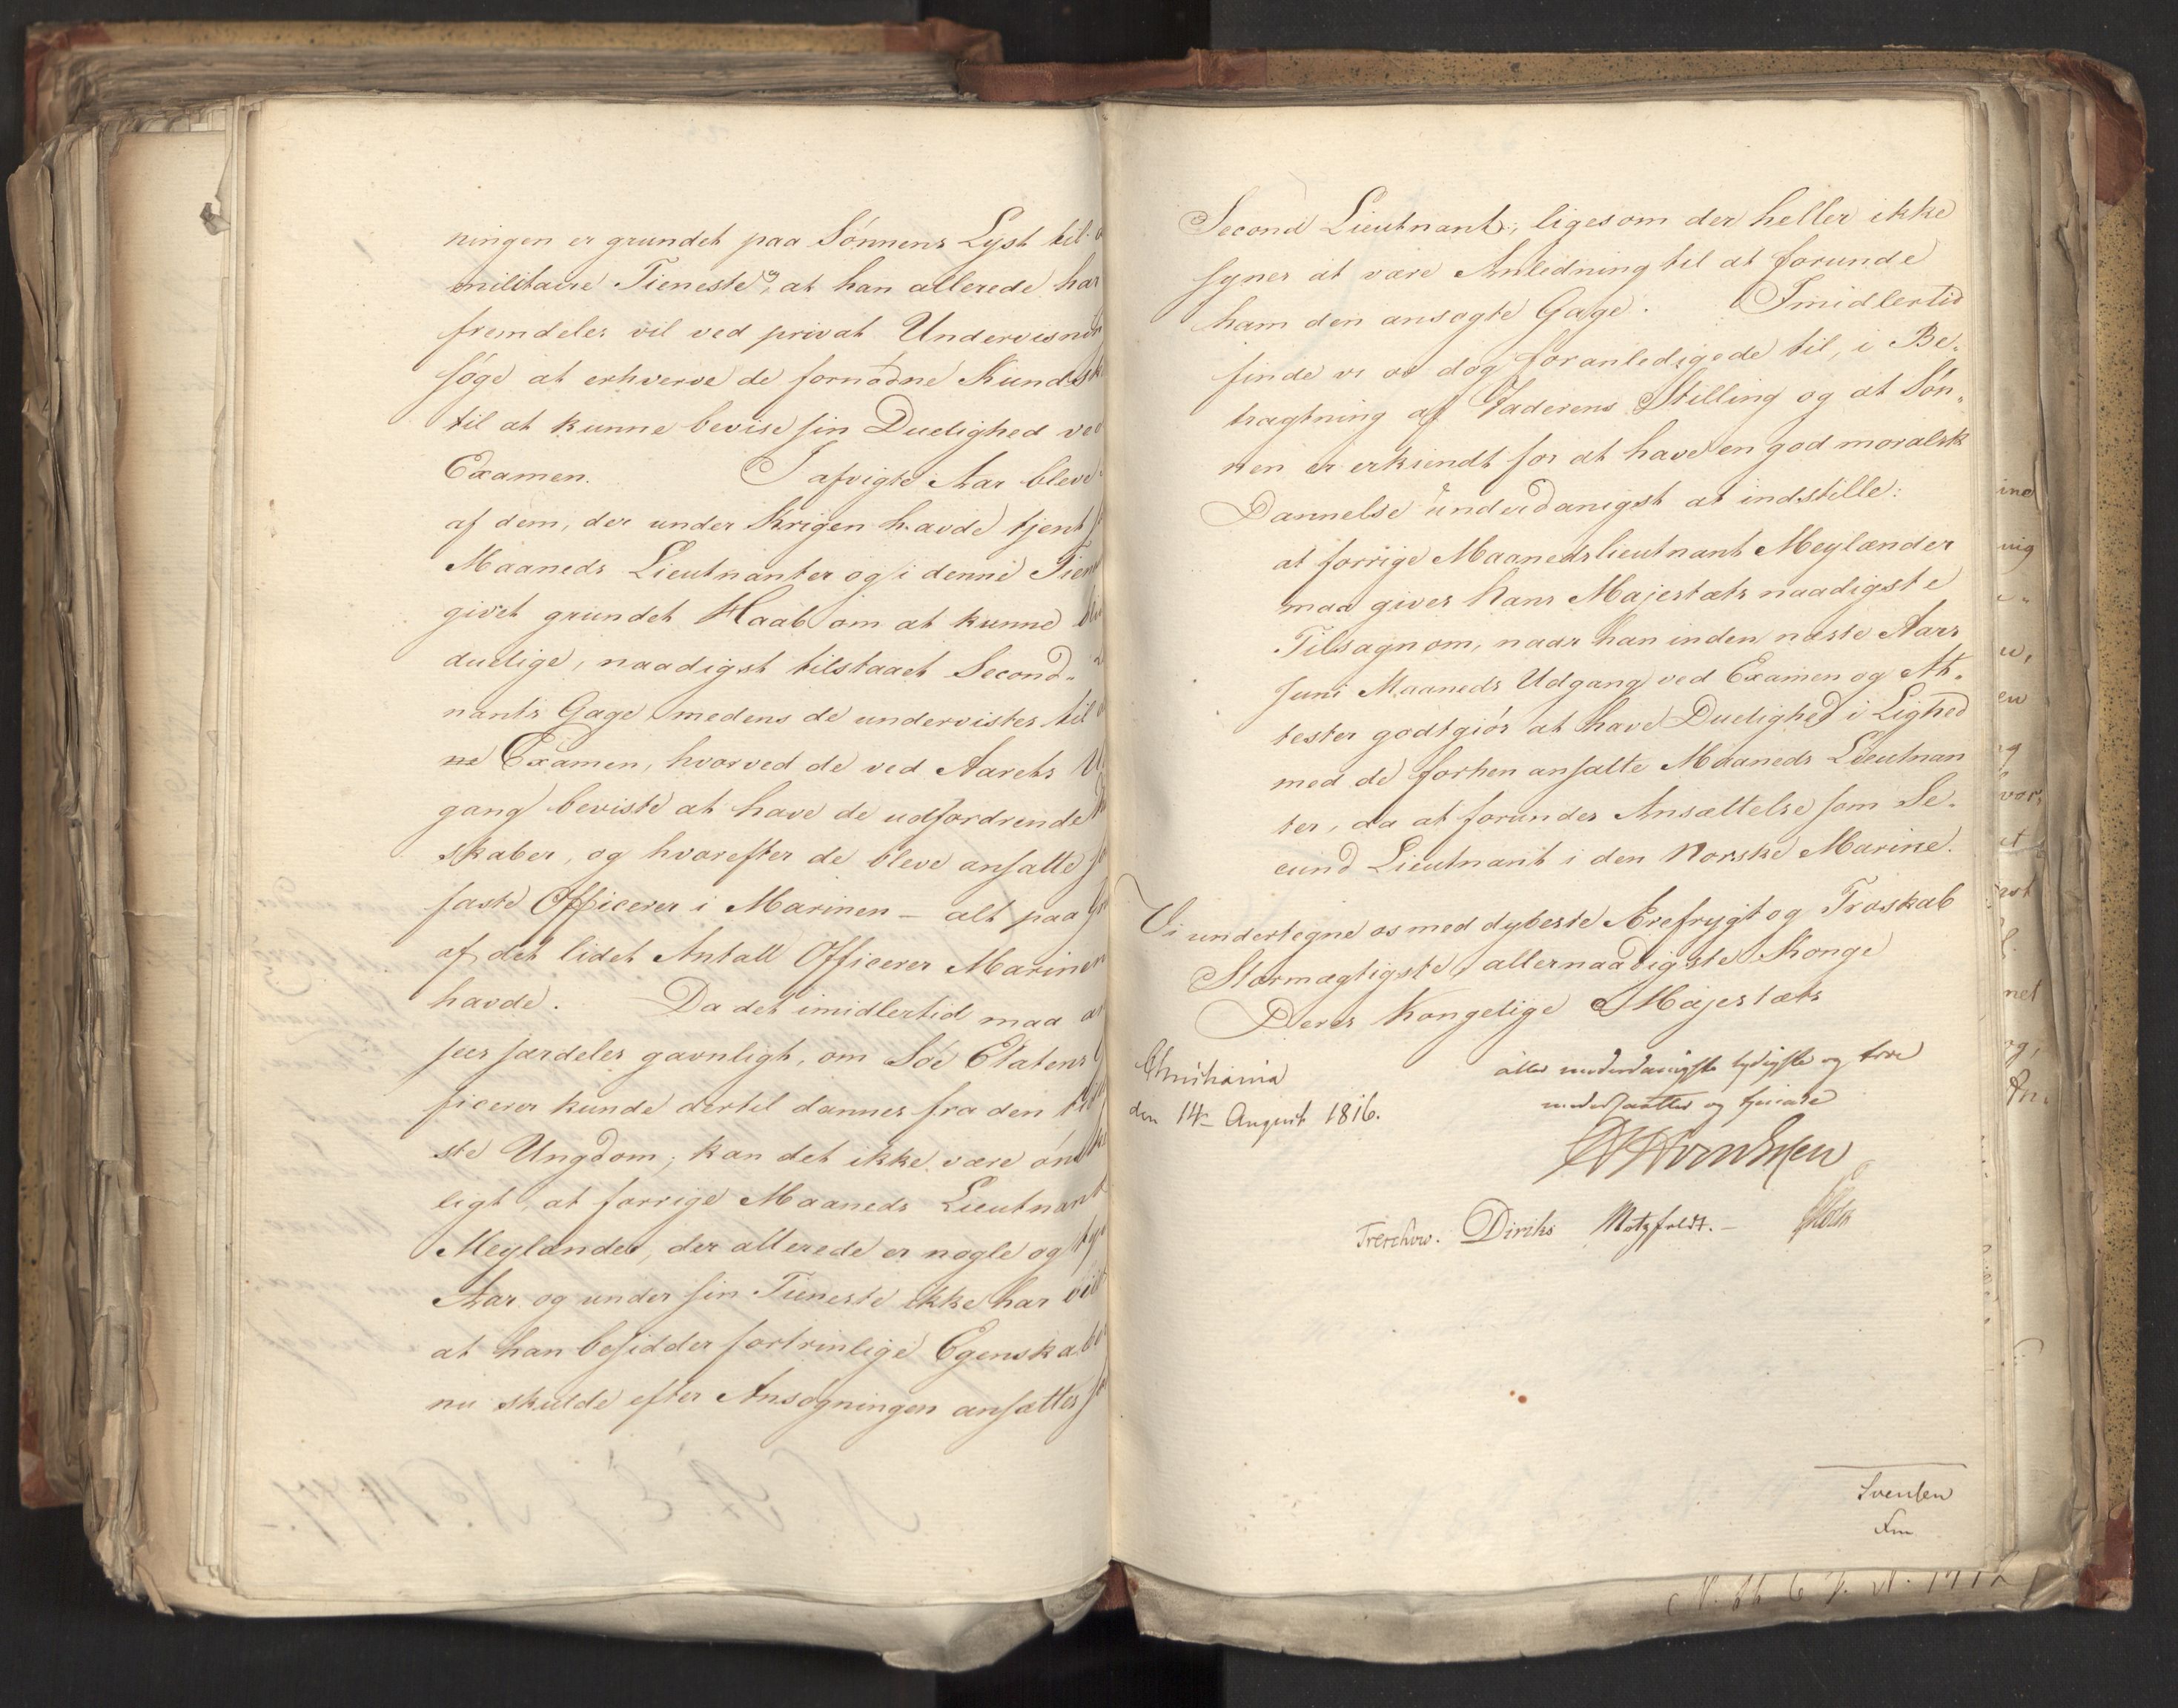 ningen er grundet paa Sønnens Lyst til
militaire Tieneste, og at han allerede har
fremdeles vil ved privat Undervisni
søge at erhverve de fornødne Kundsk
til at kunne bevise sin Duelighed ved
Examen. I afvigte Aar bleve
af dem, der under Krigen havde tjent
Maaneds Lieutnanter og i denne Tien
givet grundet Haab om at kunne bliv
duelige, naadigst tilstaaet Second-
nants Gage medens de undervistes til
ne Examen, hvorved de ved Aarets U
gang beviste at have de udfordrende
skaber, og hvorefter de bleve ansatte
faste Officerer i Marinen - alt paa
af det lidet Antall Officerer Marinen
havde. Da det imidlertid maa
sees særdeles gavnligt, om Søe Etatens
ficerer kunde dertil dannes fra den
ste Ungdom; kan det ikke være ønsk
ligt, at forrige Maaneds Lieutnant
Meylænder, der allerede er nogle og tyve
Aar og under sin Tieneste ikke har viist
at han besidder fortrinlige Egenskaber
nu skulde efter Ansøgningen ansættes
Second Lieutnant; ligesom der heller ikke
synes at være Anledning til at forunde
ham den ansøgte Gage. Imidlertid
finde vi os dog foranledigede til, i Be-
tragtning af Faderens Stilling og at Søn-
nen er erkiendt for at have en god moralsk
Dannelse underdanigst at indstille:
at forrige Maanedslieutnant Meylænder
maa gives Hans Majestæts naadigste
Tilsagn om, naar han inden næste Aars
Juni Maaneds Udgang ved Examen og At-
tester godtgiør at have Duelighed i Lighed
med de forhen ansatte Maaneds Lieutnan
ter, da at forundes Ansættelse som Se-
cund Lieutnant i den Norske Marine.
Vi undertegne os med dybeste Ærefrygt og Troskab
Stormægtigste, allernaadigste Konge
Deres Kongelige Majestæts
Christiania
den 14- August 1816.
aller underdanigste lydigste og troe
undersaatter og tjenere
Treschow. Diriks Motzfeldt.-
Svensen